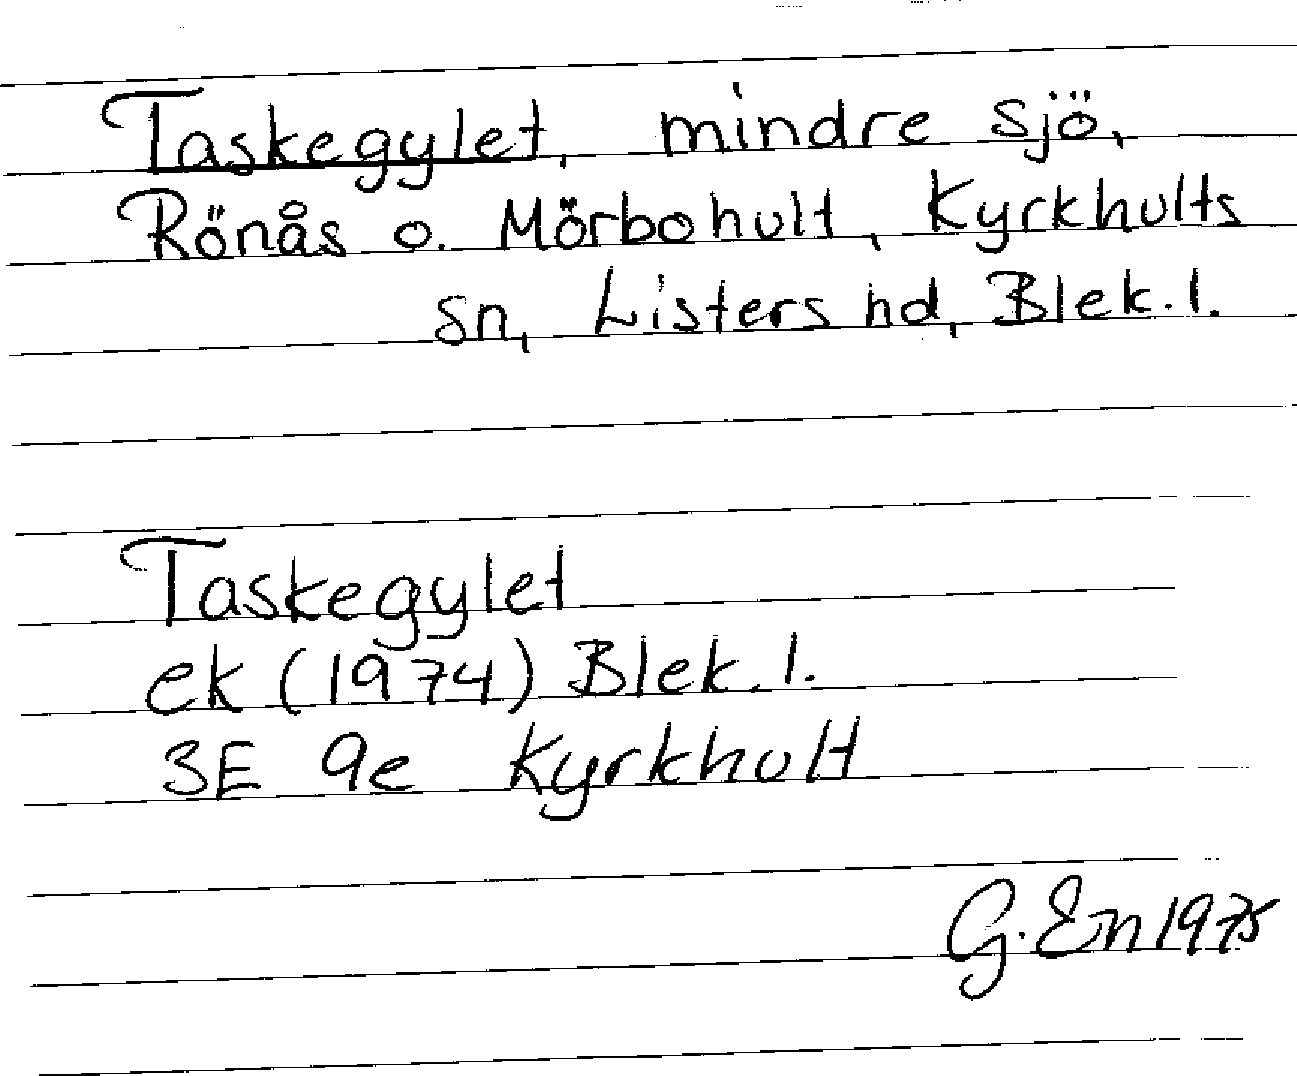 Taskegylet, mindre sjö,
Rönås o. Mörbohult, Kyrkhults
sn, Listers hd, Blek. l.
Taskegylet
ek (1974) Blek. l.
3E 9e Kyrkhult
G. En 1975